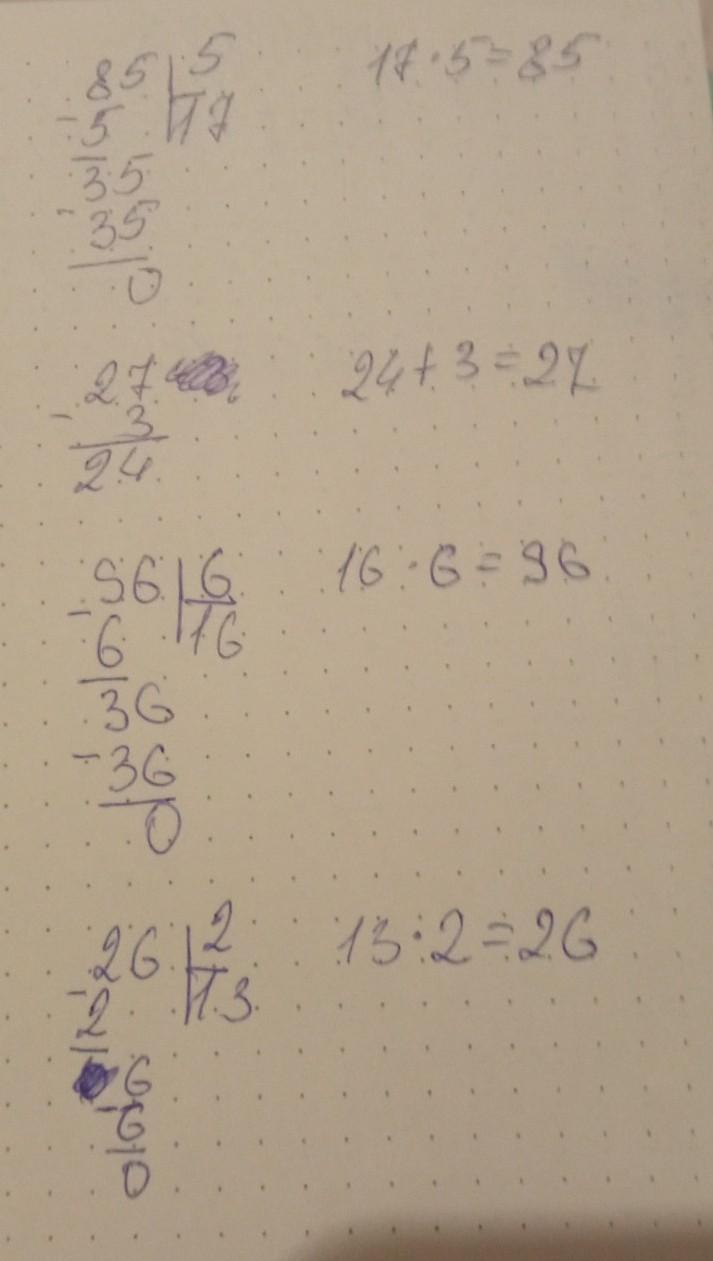 85 | 5 17 · 5 = 85
- 5 17
35
- 35
0
27 24 + 3 = 27
- 3
24
96 | 6 16 · 6 = 96
- 6 16
36
- 36
0
26 | 2 13 · 2 = 26
- 2 13
6
- 6
0